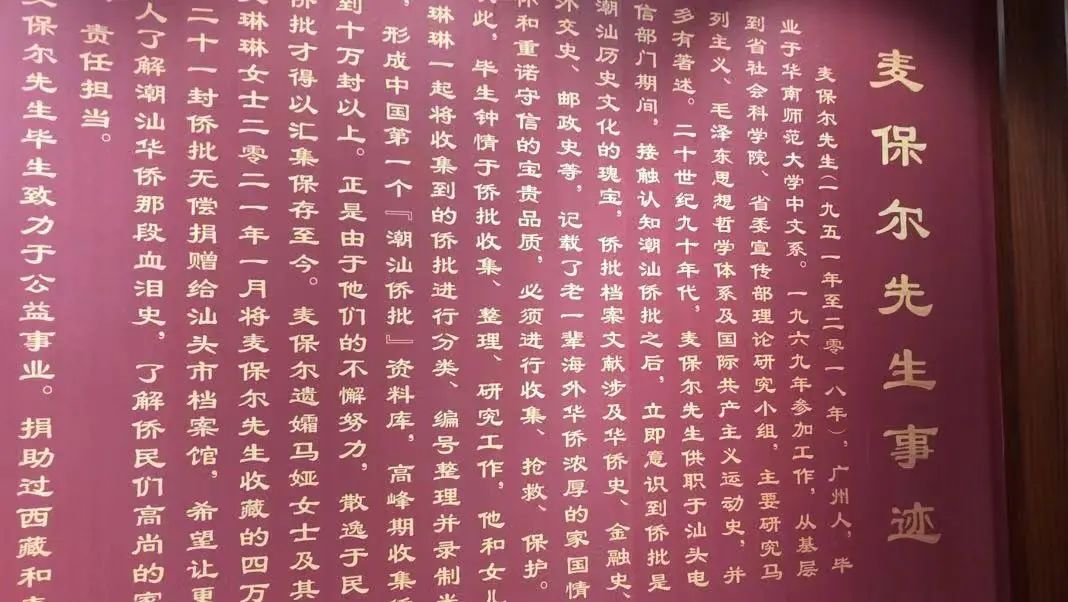 麦保尔先生事迹
麦保尔先生(一九五一年至二零一八年)，广州人，毕
业于华南师范大学中文系。一九六九年参加工作，从基层
到省社会科学院、省委宣传部理论研究小组，主要研究马
列主义、毛泽东思想哲学体系及国际共产主义运动史，并
多有著述。二十世纪九十年代，麦保尔先生供职于汕头电
信部门期间，接触认知潮汕侨批之后，立即意识到侨批是
潮汕历史文化的瑰宝，侨批档案文献涉及华侨史、金融史、
外交史、邮政史等，记载了老一辈海外华侨浓厚的家国情
保和重诺守信的宝贵品质，必须进行收集、抢救、保护。
此，毕生钟情于侨批收集、整理、研究工作，他和女儿
琳琳一起将收集到的侨批进行分类、编号整理并录制
，形成中国第一个『潮汕侨批』资料库，高峰期收集
到十万封以上。正是由于他们的不懈努力，散逸于民
侨批才得以汇集保存至今。麦保尔遗孀马娅女士及其
琳琳女士二零二一年一月将麦保尔先生收藏的四万
二十一封侨批无偿捐赠给汕头市档案馆，希望让更
人了解潮汕华侨那段血泪史，了解侨民们高尚的家
责任担当。
保尔先生毕生致力于公益事业。捐助过西藏和